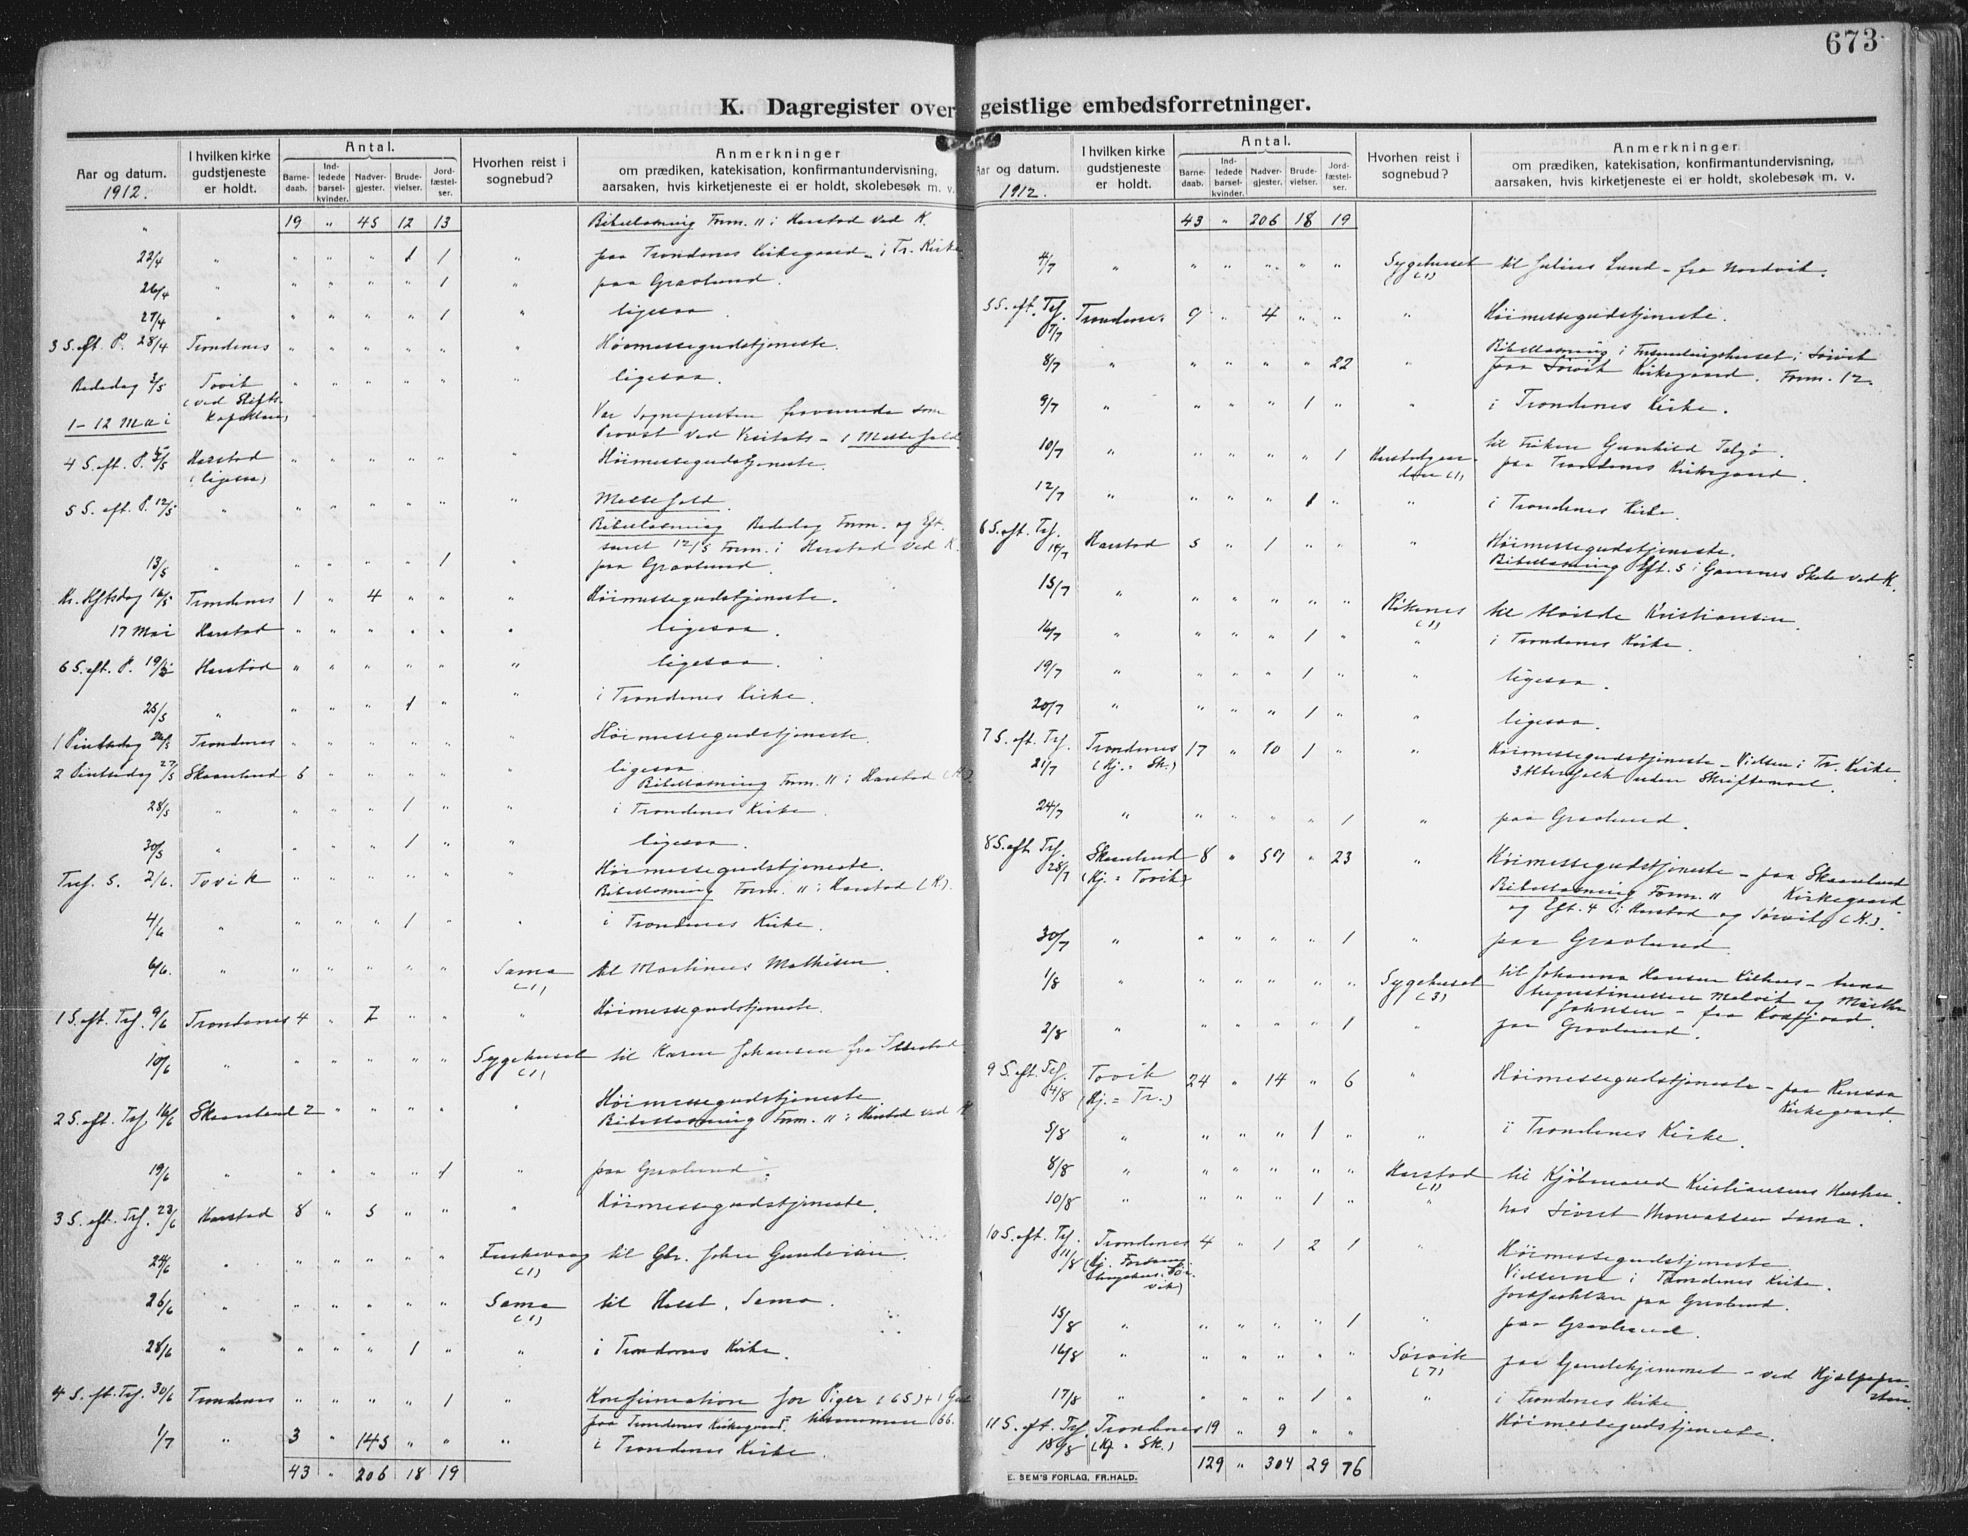 673
K. Dagregister over geistlige embedsforretninger.
Aar og datum. 1912.
I hvilken kirke gudstjeneste er holdt.
Antal.
Barnedaab.
Indledede barselkvinder.
Nadvergjester.
Brudevielser.
Jordfæstelser.
Hvorhen reist i sognebud?
Anmerkninger
om prædiken, katekisation, konfirmantundervisning,
aarsaken, hvis kirketjeneste ei er holdt, skolebesøk m. v.
" 19 " 45 12 13 Bibellæsning Form. 11 i Harstad ved K.
22/4 " " " " 1 1 " paa Trondenes Kirkegaard – i Tr. Kirke
26/4 " " " " " 1 " paa Gravlund.
27/4 " " " " 1 " ligesaa.
3 S. eft. P. 28/4 Trondenes " " " " " " Høimessegudstjeneste.
Bededag 3/5 Tovik " " " " " " ligesaa.
(ved Stifts-
kapellan)
1–12 Mai Var Sognepresten fraværende som
Provst ved Visitats – 1 Messefald
4 S. eft. P. 5/5 Harstad " " " " " " Høimessegudstjeneste.
(ligesaa)
5 S. eft. P. 12/5 " " " " " " " Messefald.
Bibellæsning Bededag Form. og Eft.
samt 12/5 Form. i Harstad ved K.
13/5 " " " " " 1 " paa Gravlund.
Kr. Hftsdag 16/5 Trondenes 1 " 4 " " " Høimessegudstjeneste.
17 Mai Harstad " " " " " " ligesaa.
6 S. eft. P. 19/5 Harstad " " " " " " ligesaa.
25/5 " " " " 1 " " i Trondenes Kirke.
1 Pintsedag 26/5 Trondenes " " " " " " Høimessegudstjeneste.
2 Pintsedag 27/5 Skaanland 6 " " " " " ligesaa
Bibellæsning Form. 11 i Harstad (K)
28/5 " " " " 1 " " i Trondenes Kirke.
30/5 " " " " 1 " " ligesaa.
Tref. S. 2/6. Tovik " " " " " " Høimessegudstjeneste.
Bibellæsning Form. 11 i Harstad (K).
4/6 " " " " 1 " " i Trondenes Kirke.
6/6. " " " " " " Sama (1) til Martinus Mathisen.
1 S. eft. Tref. 9/6 Trondenes 4 " 7 " " " Høimessegudstjeneste.
10/6 " " " " " " Sygehuset (1) til Karen Johansen fra
2 S. eft. Tref. 16/6 Skaanland 2 " " " " " Høimessegudstjeneste
Bibellæsning Form. 11 i Harstad ved K
19/6 " " " " " 1 " paa Gravlund.
3 S. eft. Tref. 23/6 Harstad 8 " 5 " " " Høimessegudstjeneste.
24/6 " " " " " " (1) til Gbr. Johan Gundersen.
26/6 " " " " " " Sama (1) til Holst, Sama.
28/6 " " " " 1 " " i Trondenes Kirke.
4 S. eft. Tref. 30/6 Trondenes " " " " 1 " Konfirmation for Piger (65) + 1
paa Trondenes Kirkegaard. tilsammen 66.
1/7 " 3 " 145 " " " i Trondenes Kirke.
43 " 206 18 19
Aar og datum. 1912.
I hvilken kirke gudstjeneste er holdt.
Antal.
Barnedaab.
Indledede barselkvinder.
Nadvergjester.
Brudevielser.
Jordfæstelser.
Hvorhen reist i sognebud?
Anmerkninger
om prædiken, katekisation, konfirmantundervisning,
aarsaken, hvis kirketjeneste ei er holdt, skolebesøk m. v.
43 " 206 18 19
4/7 " " " " " " Sygehuset (1) til Julius Lund – fra Nordvik.
5 S. eft. Tref. 7/7 Trondenes 9 " 4 " " " Høimessegudstjeneste.
8/7 " " " " " 22 " Bibellæsning i Forsamlingshuset i Sørvik
paa Sørvik Kirkegaard. Form. 12.
9/7 " " " " 1 " " i Trondenes Kirke.
10/7 " " " " " 1 Harstadgaarden (1) til Frøken Gunhild
paa Trondenes Kirkegaard.
12/7 " " " " 1 " " i Trondenes Kirke.
6 S. eft. Tref. 14/7 Harstad 5 " 1 " " " Høimessegudstjeneste.
Bibellæsning Eft. 5 i Gamnes Skole ved K.
15/7 " " " " " " Røkenes (1) til Kristiansen.
16/7 " " " " 1 " " i Trondenes Kirke.
19/7 " " " " 1 " " ligesaa.
20/7 " " " 1 " " ligesaa.
7 S. eft. Tref. 21/7 Trondenes 17 " 10 1 " " Høimessegudstjeneste – Vielsen i Tr. Kirke.
(Kj. = Sk.) 3 Alterfolk uden Skriftemaal.
24/7 " " " " " 1 " paa Gravlund.
8 S. eft. Tref. 28/7 Skaanland 8 " 59 " 23 " Høimessegudstjeneste – paa Skaanland
(Kj. = Tovik) Kirkegaard.
Bibellæsning Form. 11
og Eft. 4 i Harstad og Sørvik (K.).
30/7 " " " " " 1 " paa Gravlund
1/8 " " " " " " Sygehuset (3) til Johanna Hansen –
Augustinussen Melvik og Martha
Johnsen – fra
2/8 " " " " " 1 " paa Gravlund.
9 S. eft. Tref. 4/8 Tovik 24 " 14 " 6 " Høimessegudstjeneste – paa Rensaa
(Kj. = Tr.) Kirkegaard.
5/8 " " " " 1 " " i Trondenes Kirke.
8/8 " " " " " " Harstad (1) til Kjøbmand Kristiansens Hustru.
10/8 " " " " 1 " " hos Sivert Thomassen Sama.
10 S. eft. Tref. 11/8 Trondenes 4 " 1 2 1 " Høimessegudstjeneste
(Kj. Forsamlingshus. Sørvik) Vielserne i Trondenes Kirke.
Jordfæstelsen paa Gravlund.
15/8 " " " " " 1 " paa Gravlund.
16/8 " " " " " " Sørvik (7) paa Gamlehjemmet – ved Hjælpepresten.
17/8 " " " " 1 " " i Trondenes Kirke.
11 S. eft. Tref. 18/8 Trondenes 19 " 9 " " Høimessegudstjeneste.
(Kj = Sk.)
129 " 304 29 76
E. SEM'S FORLAG, FR.HALD.